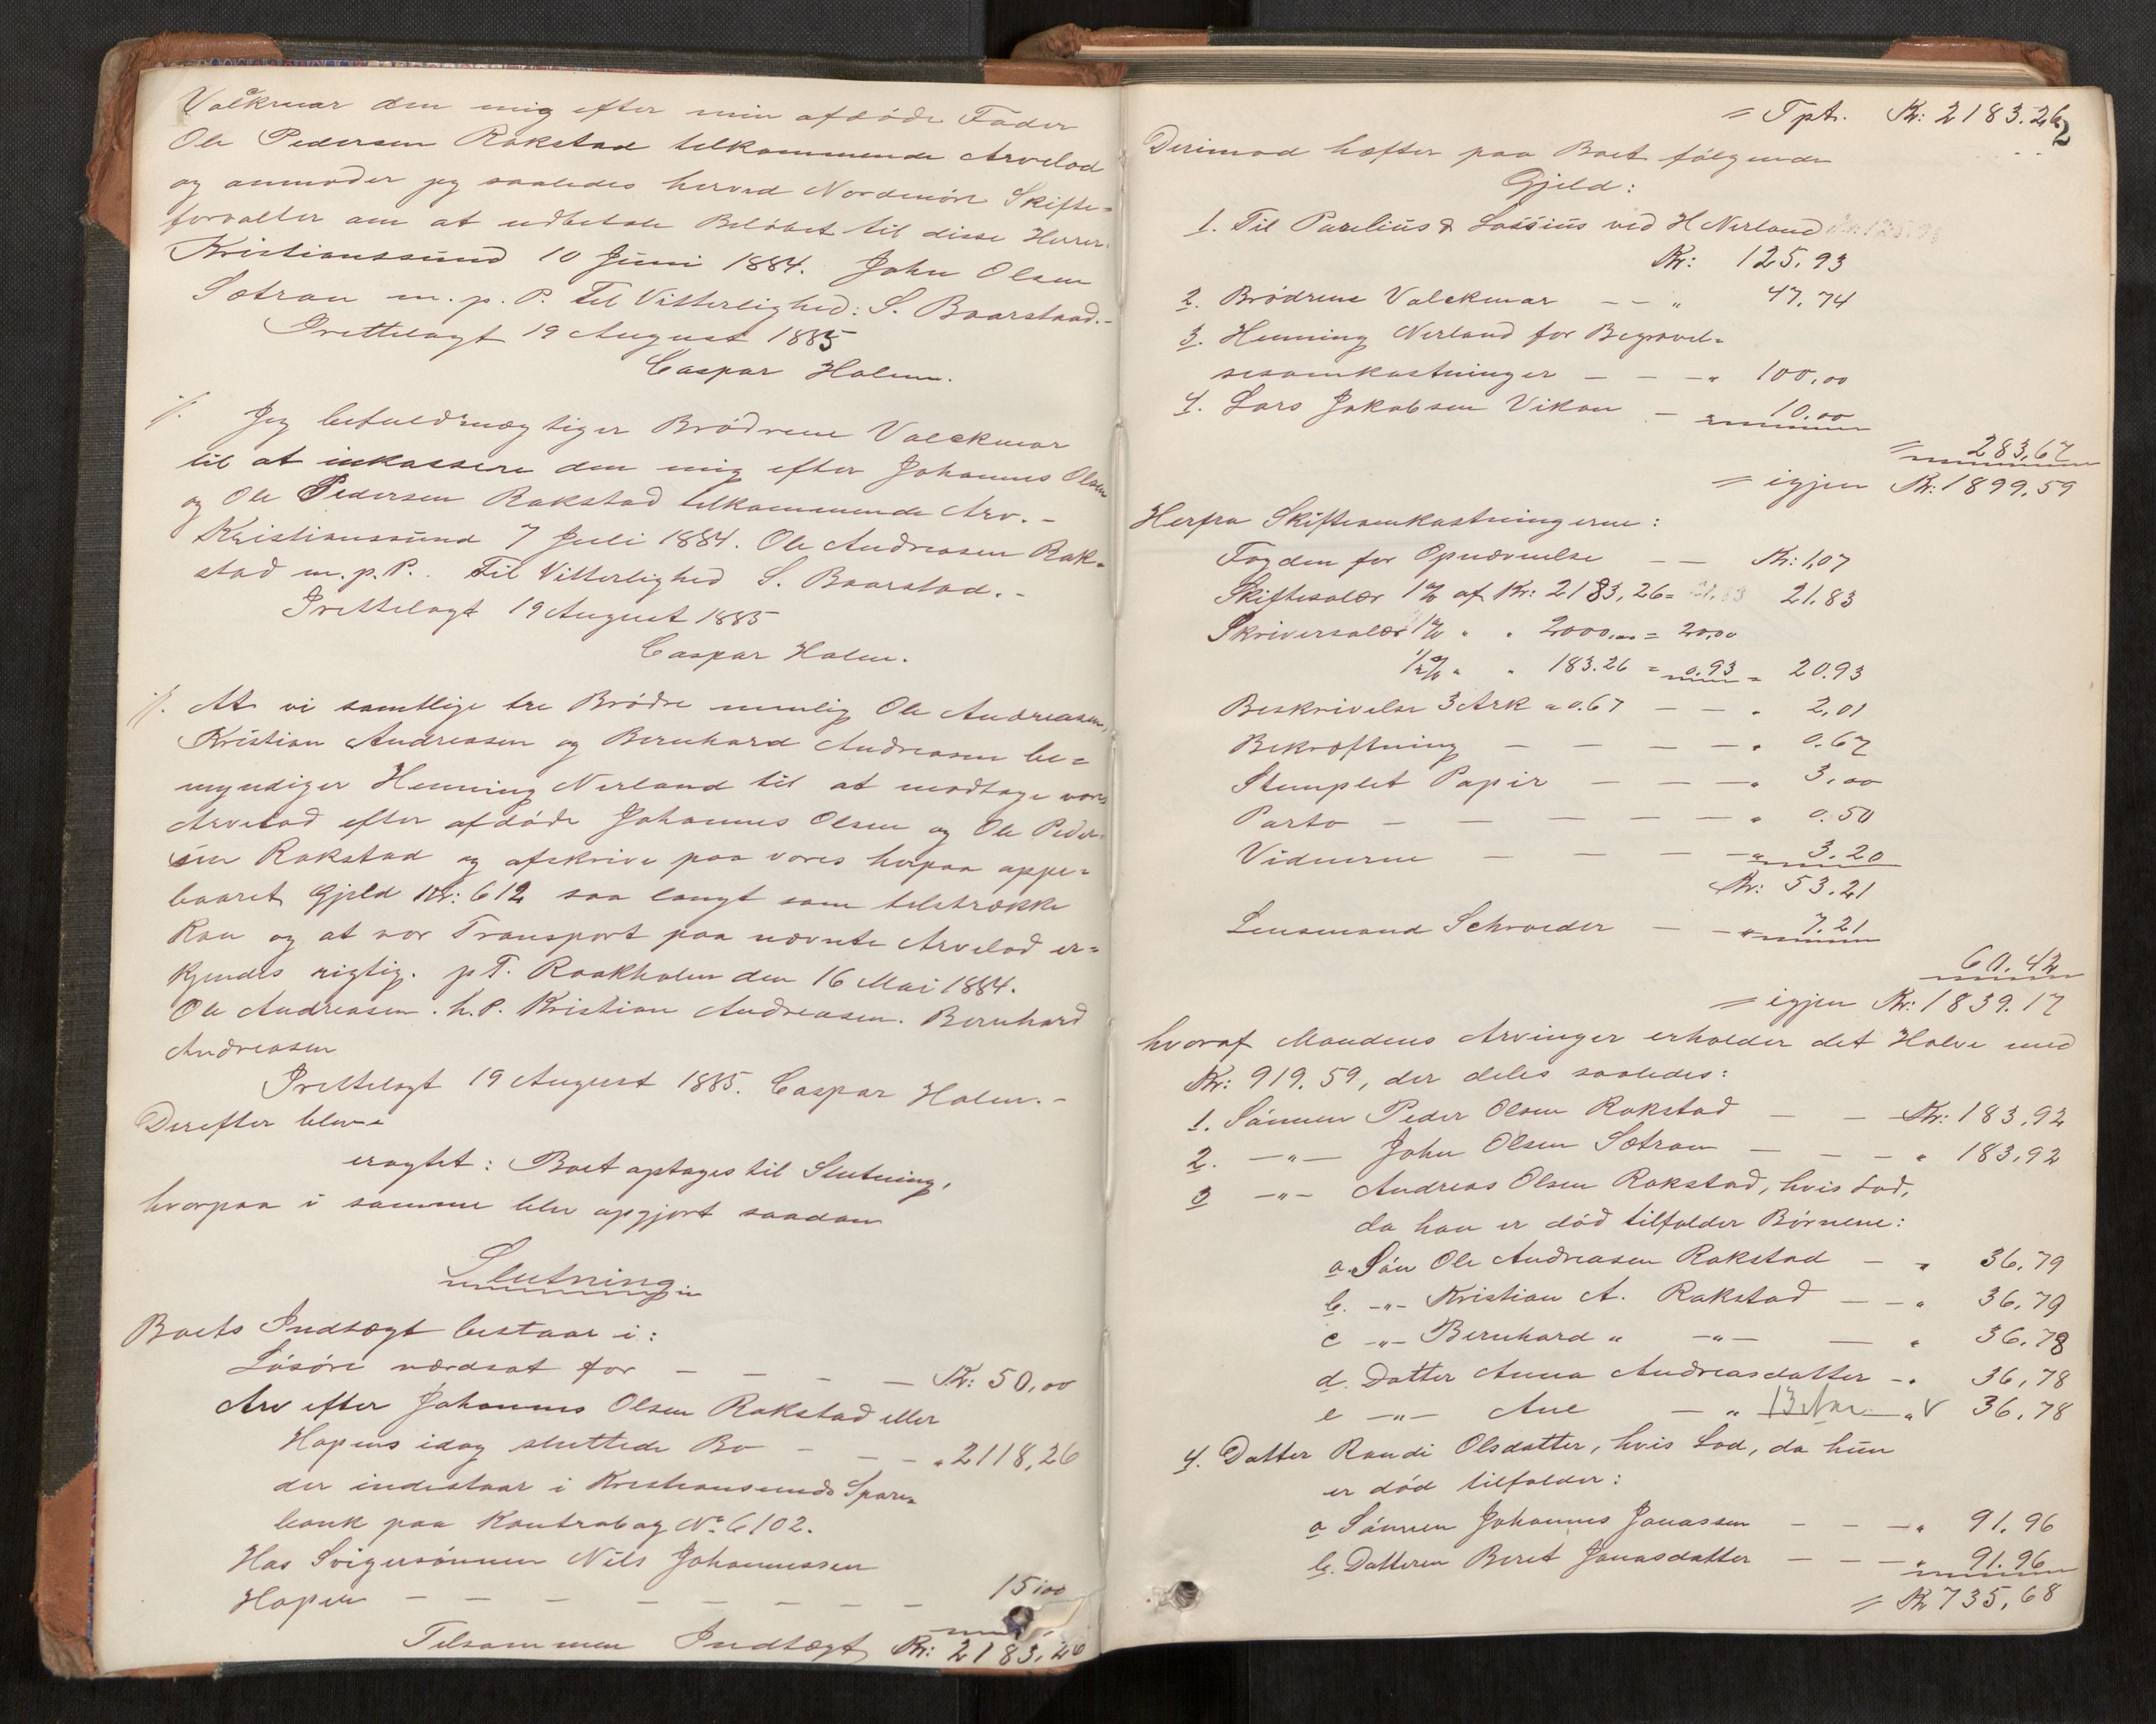 Valckmar den mig efter min afdöde Fader
Ole Pedersen Rakstad tilkommende Arvelod
og anmoder jeg saaledes herved Nordmöre Skifte=
forvalter om at udbetale Belöbet til disse Herrer.
Kristianssund 10 Juni 1884. John Olsen
Sætran m. p. P. Til Vitterlighed: S. Baarstad.-
Irettelagt 19 August 1885
Caspar Holm.
./. Jeg befuldmægtiger Brödrene Valckmar
til at inkassere den mig efter Johannes Olsen
og Ole Pedersen Rakstad tilkommende Arv.-
Kristianssund 7 Juli 1884. Ole Andreasen Rak=
stad m. p. P. Til Vitterlighed S. Baarstad.-
Irettelagt 19 August 1885
Caspar Holm.
./. At vi samtlige tre Brödre nemlig Ole Andreasen,
Kristian Andreasen og Bernhard Andreasen be=
myndiger Henning Nerland til at modtage vores
Arvelod efter afdöde Johannes Olsen og Ole Peder=
sen Rakstad og afskrive paa vores herpaa oppe=
baaret Gjeld Kr: 612 saa langt som tilstrække
kan og at vor Transport paa nævnte Arvelod er=
kjendes rigtig. p T. Raakholm den 16 Mai 1884.
Ole Andreasen. h. P. Kristian Andreasen. Bernhard
Andreasen
Irettelagt 19 August 1885. Caspar Holm.-
Derefter blev
eragtet: Boet optages til Slutning,
hvorpaa i samme blev opgjort saadan
Slutning.
Boets Indtægt bestaar i:
Lösöre værdsat for - - - - Kr: 50,00
Arv efter Johannes Olsen Rakstad eller
Hopens idag sluttede Bo - - - " 2118,26
der indestaar i Kristianssunds Spare=
bank paa Kontrabog No 6102.
Hos Svigersönnen Nils Johannessen
Hopen - - - - - - - - - 15,00
Tilsammen Indtægt Kr: 2183,26
2
= Tpt. Kr: 2183.26
Derimod hefter paa Boet fölgende
Gjeld:
1. Til Parelius & Lossius ved H Nerland
Kr: 125.93
2. Brödrene Valckmar - - " 47.74
3. Henning Nerland for Begravel=
sesomkostninger - - - " 100,00
4. Lars Jakobsen Vikan - " 10.00
= 283,67
= igjen Kr: 1899.59
Herfra Skifteomkostningerne:
Fogden for Opnævnelse - - Kr: 1,07
Skiftesalær 1% af Kr: 2183,26= 21.83
Skriversalær 1% " " 2000,00 = 20,00
1/2% " " 183.26 = 0.93 = 20.93
Beskrivelse 3 Ark a 0.67 - - " 2,01
Bekræftning - - - - " 0.67
Stemplet Papir - - - " 3,00
Porto - - - - - " 0.50
Vidnerne - - - - " 3.20
Kr: 53.21
Lensmand Schroeder - - " 7.21
60.42
= igjen Kr: 1839.17
hvoraf Mandens Arvinger erholder det Halve med
Kr: 919.59, der deles saaledes:
1. Sönnen Peder Olsen Rakstad - - Kr: 183,92
2. -"- John Olsen Sætran - - - " 183,92
3 -"- Andreas Olsen Rakstad, hvis Lod,
da han er död tilfalder Börnene:
a. Sön Ole Andreasen Rakstad - " 36,79
b. -"- Kristian A. Rakstad - - " 36,79
c -"- Bernhard " -"- - " 36,78
d. Datter Anna Andreasdatter - " 36,78
e -"- Ane - " 13 Aar - " V 36,78
4. Datter Randi Olsdatter, hvis Lod, da hun
er död tilfalder:
a Sönnen Johannes Jonassen - - - " 91.96
b. Datteren Beret Jonasdatter - - - " 91.96
= Kr 735,68